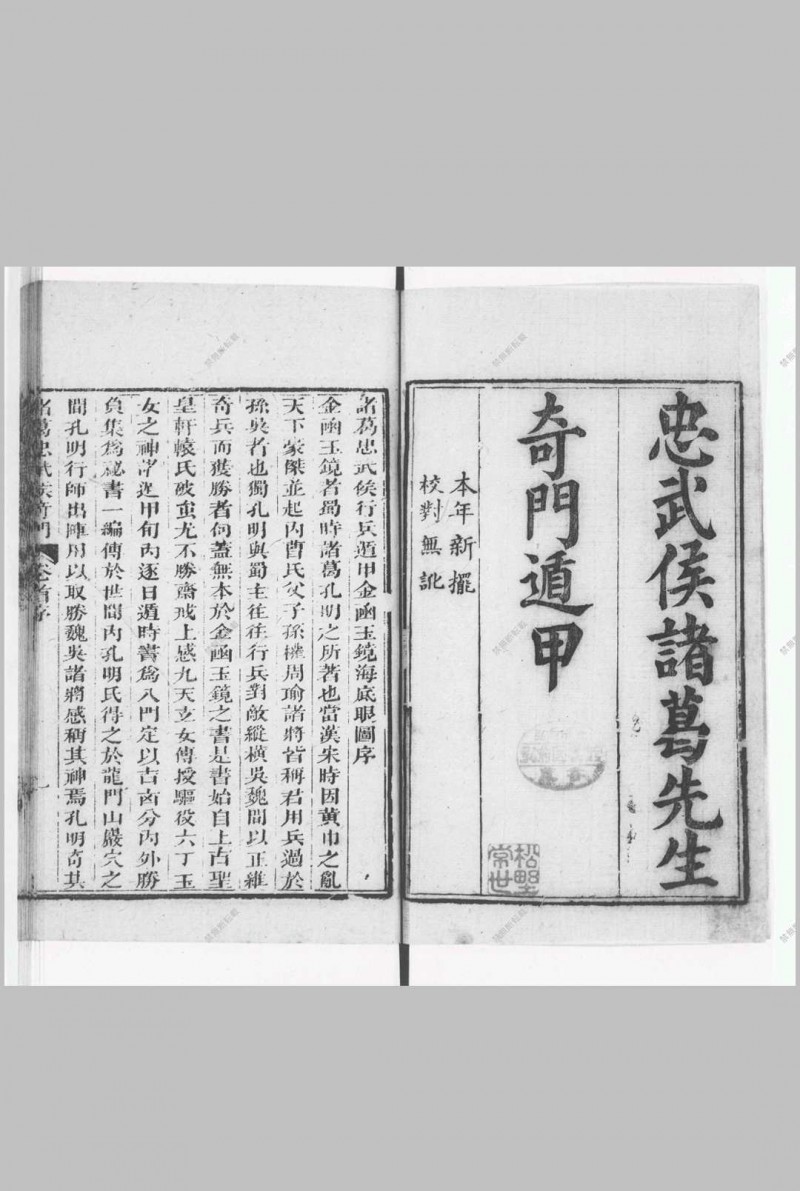 忠武侯諸葛先生
奇門遁甲
本年新擺
校對無訛
松野
常世
諸葛忠武侯行兵遁甲金函玉鏡海底眼圖序
金函玉鏡者蜀時諸葛孔明之所著也當漢末時因黃巾之亂
天下豪傑並起内曹氏父子孫權周瑜諸將皆稱君用兵過於
孫吳者也獨孔明與蜀主往往行兵對敵縱橫吳魏間以正雜
奇兵而獲勝者何蓋無本於金函玉鏡之書是書始自上古聖
皇軒轅氏破蚩尤不勝齋戒上感九天玄女傳授驅役六丁玉
女之神
遁甲旬内逐日遁時書爲八門定以吉凶分内外勝
負集爲秘書一編傳於世間内孔明氏得之於龍門山巖穴之
間孔明行師出陣用以取勝魏吳諸將感稱其神焉孔明奇其
諸葛忠武侯奇門 卷首序